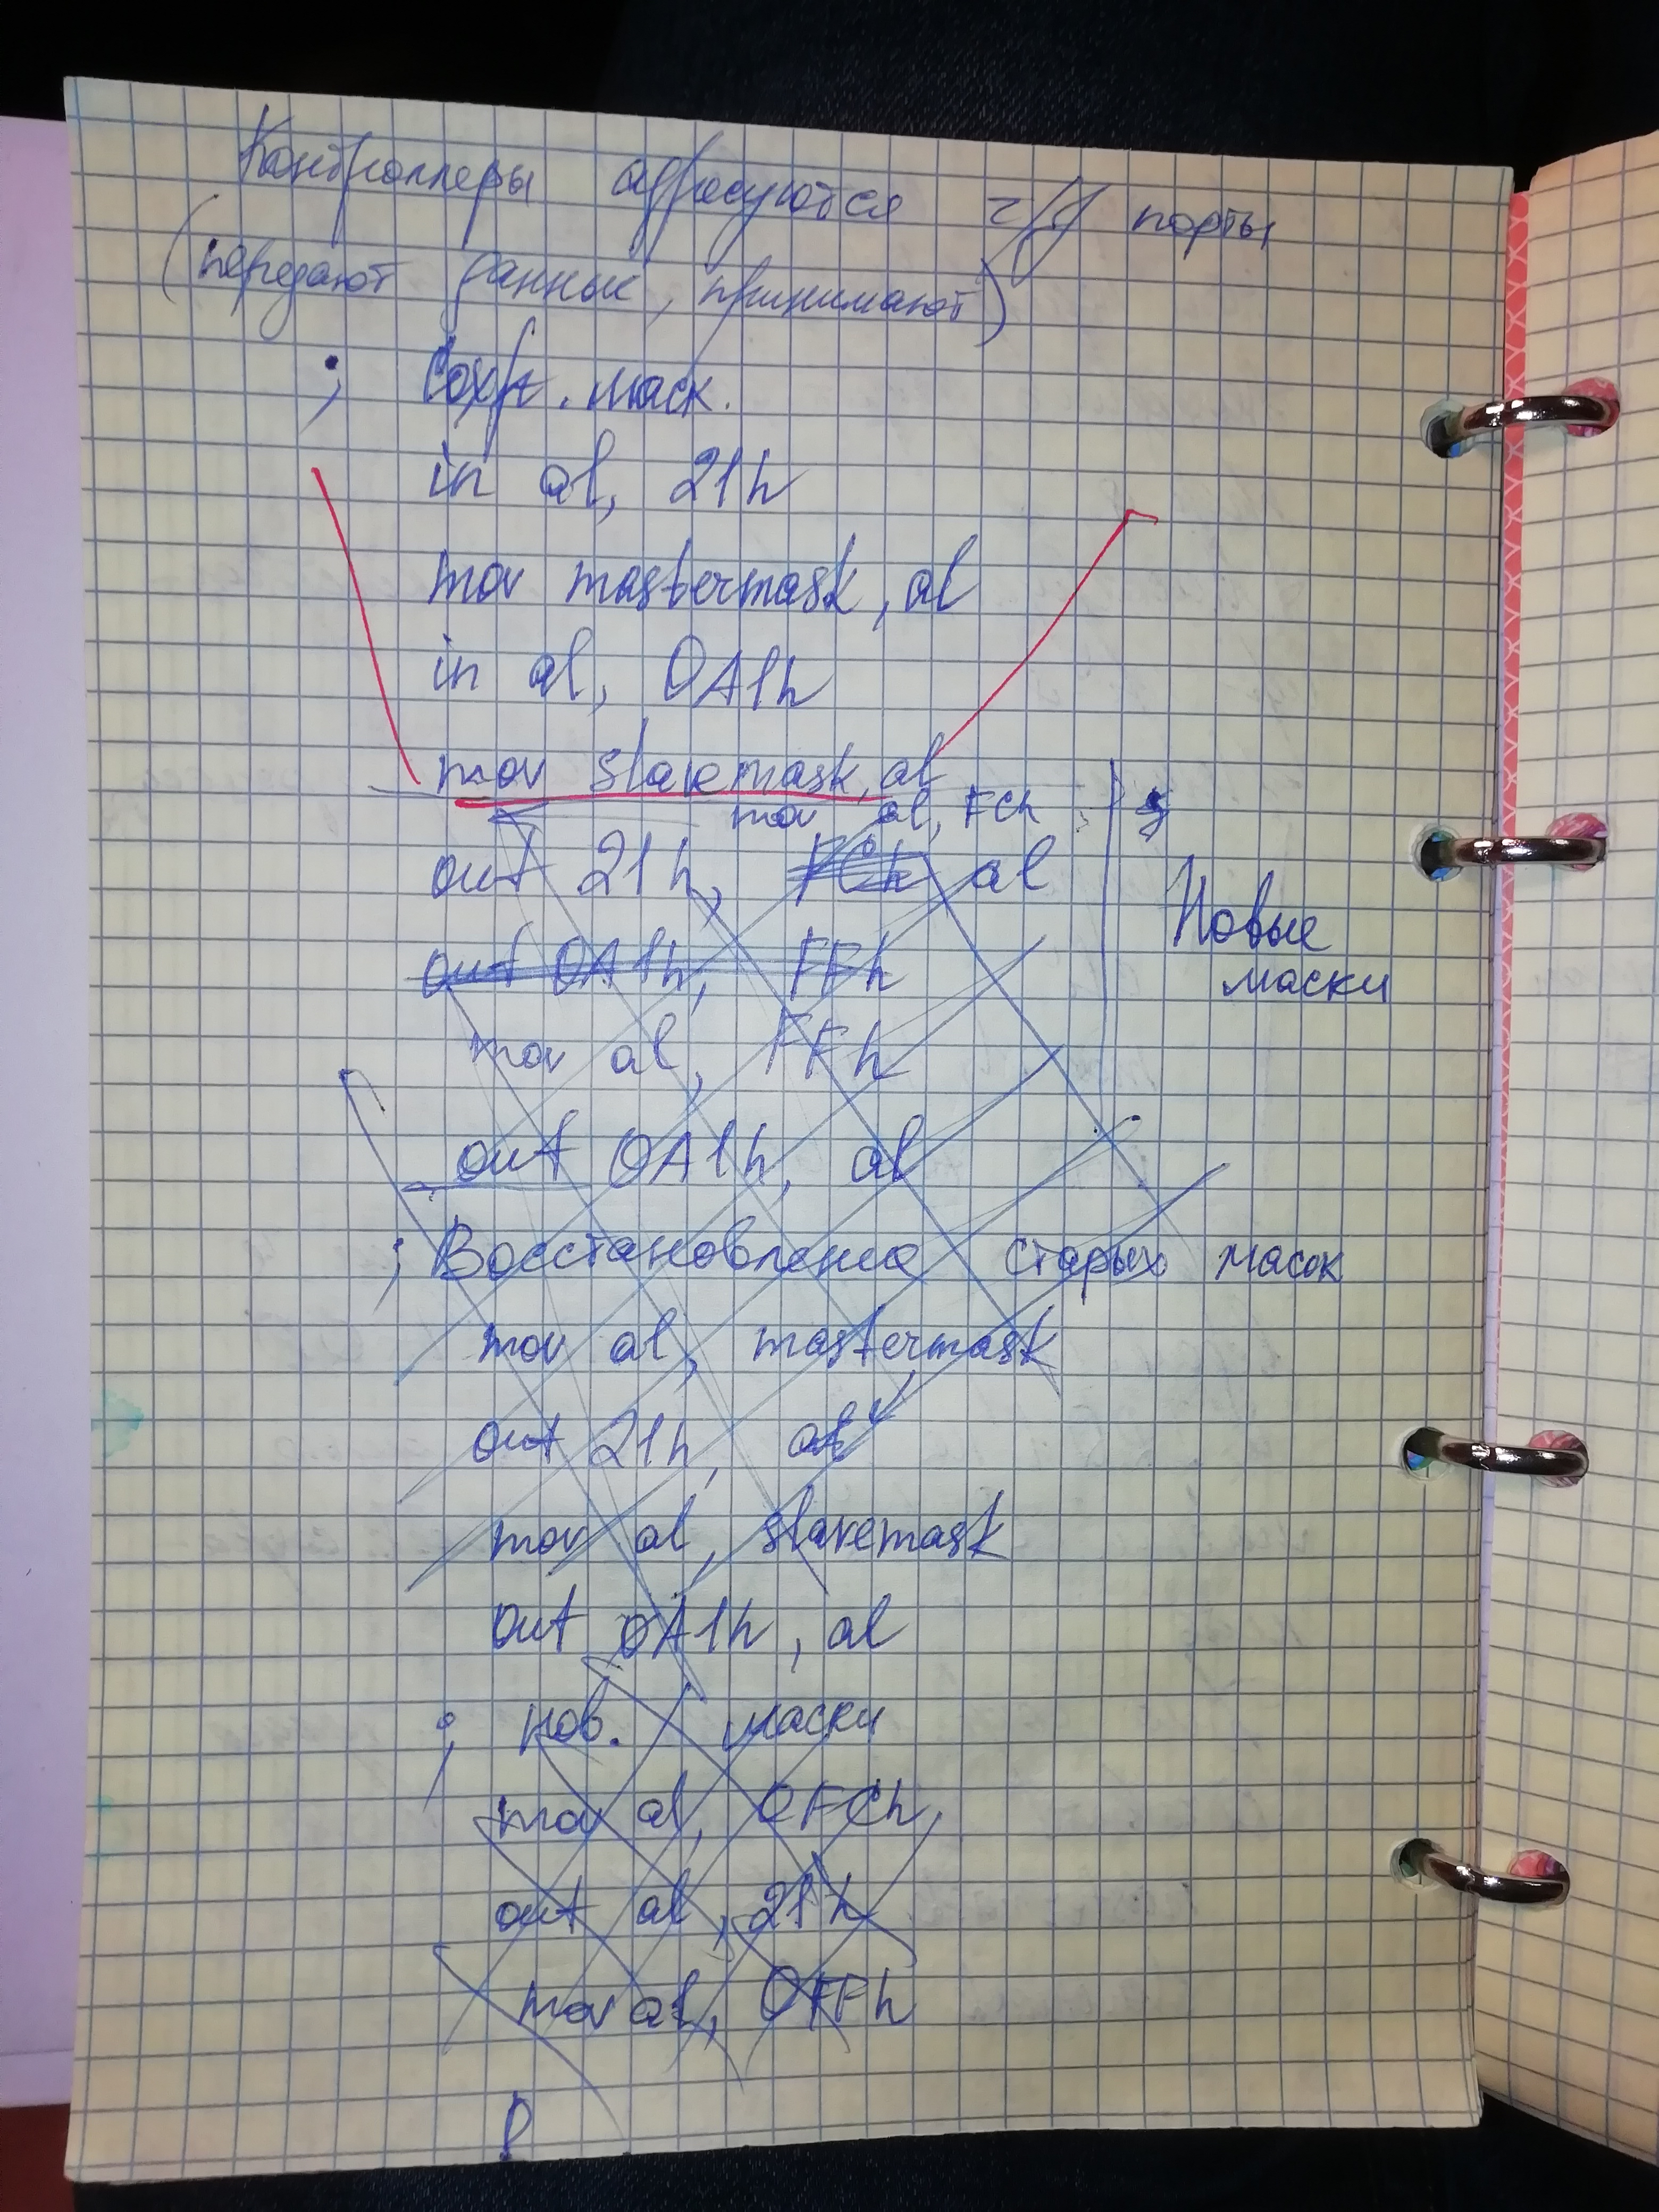 Контроллеры адресуются ч/з порты
(передают данные, принимают)
; Сохр. маск.
in al, 21h
mov mastermask, al
in al, 0A1h
mov slavemask, al
mov al, FCh
out 21h, FCh al
Новые
маски
out 0A1h, FFh
mov al, FFh
out 0A1h, al
; Восстановление старых масок
mov al, mastermask
out 21h, al
mov al, slavemask
out 0A1h, al
; нов. маски
mov al, 0FCh
out al, 21h
mov al, 0FFh